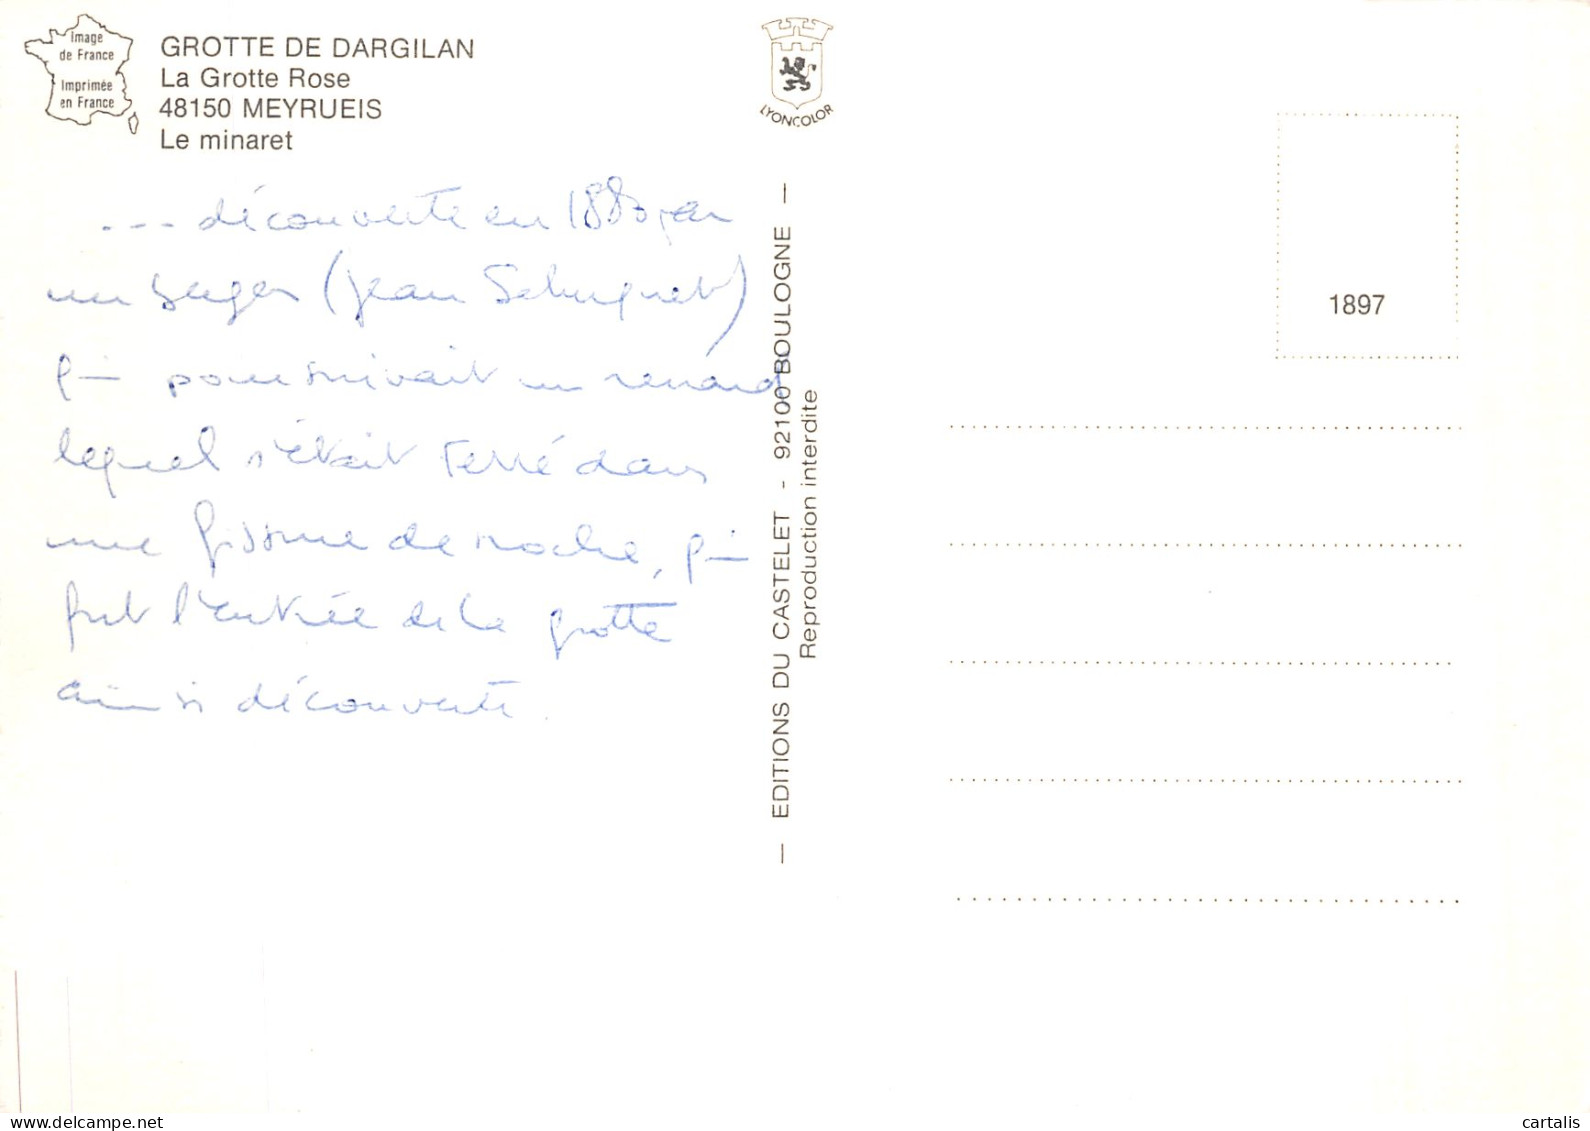 Image
de France
Imprimée
en France
GROTTE DE DARGILAN
La Grotte Rose
48150 MEYRUEIS
Le minaret
... découverte en 1880 par
un berger (Jean)
qui poursuivait un renard,
lequel s'était terré dans
une fissure de roche, qui
fut l'entrée de la grotte
ainsi découverte.
LYONCOLOR
— EDITIONS DU CASTELET - 92100 BOULOGNE —
Reproduction interdite
1897
www.cartalis.com